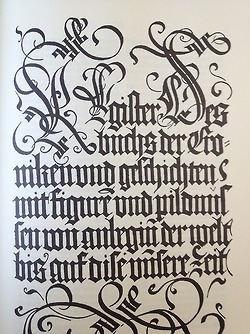 Register Des
buchs der Cro-
niken und geschichten
mit figurẽ und pildnus-
sen von anbegiñ der welt
bis auf dise unnsere Zeit